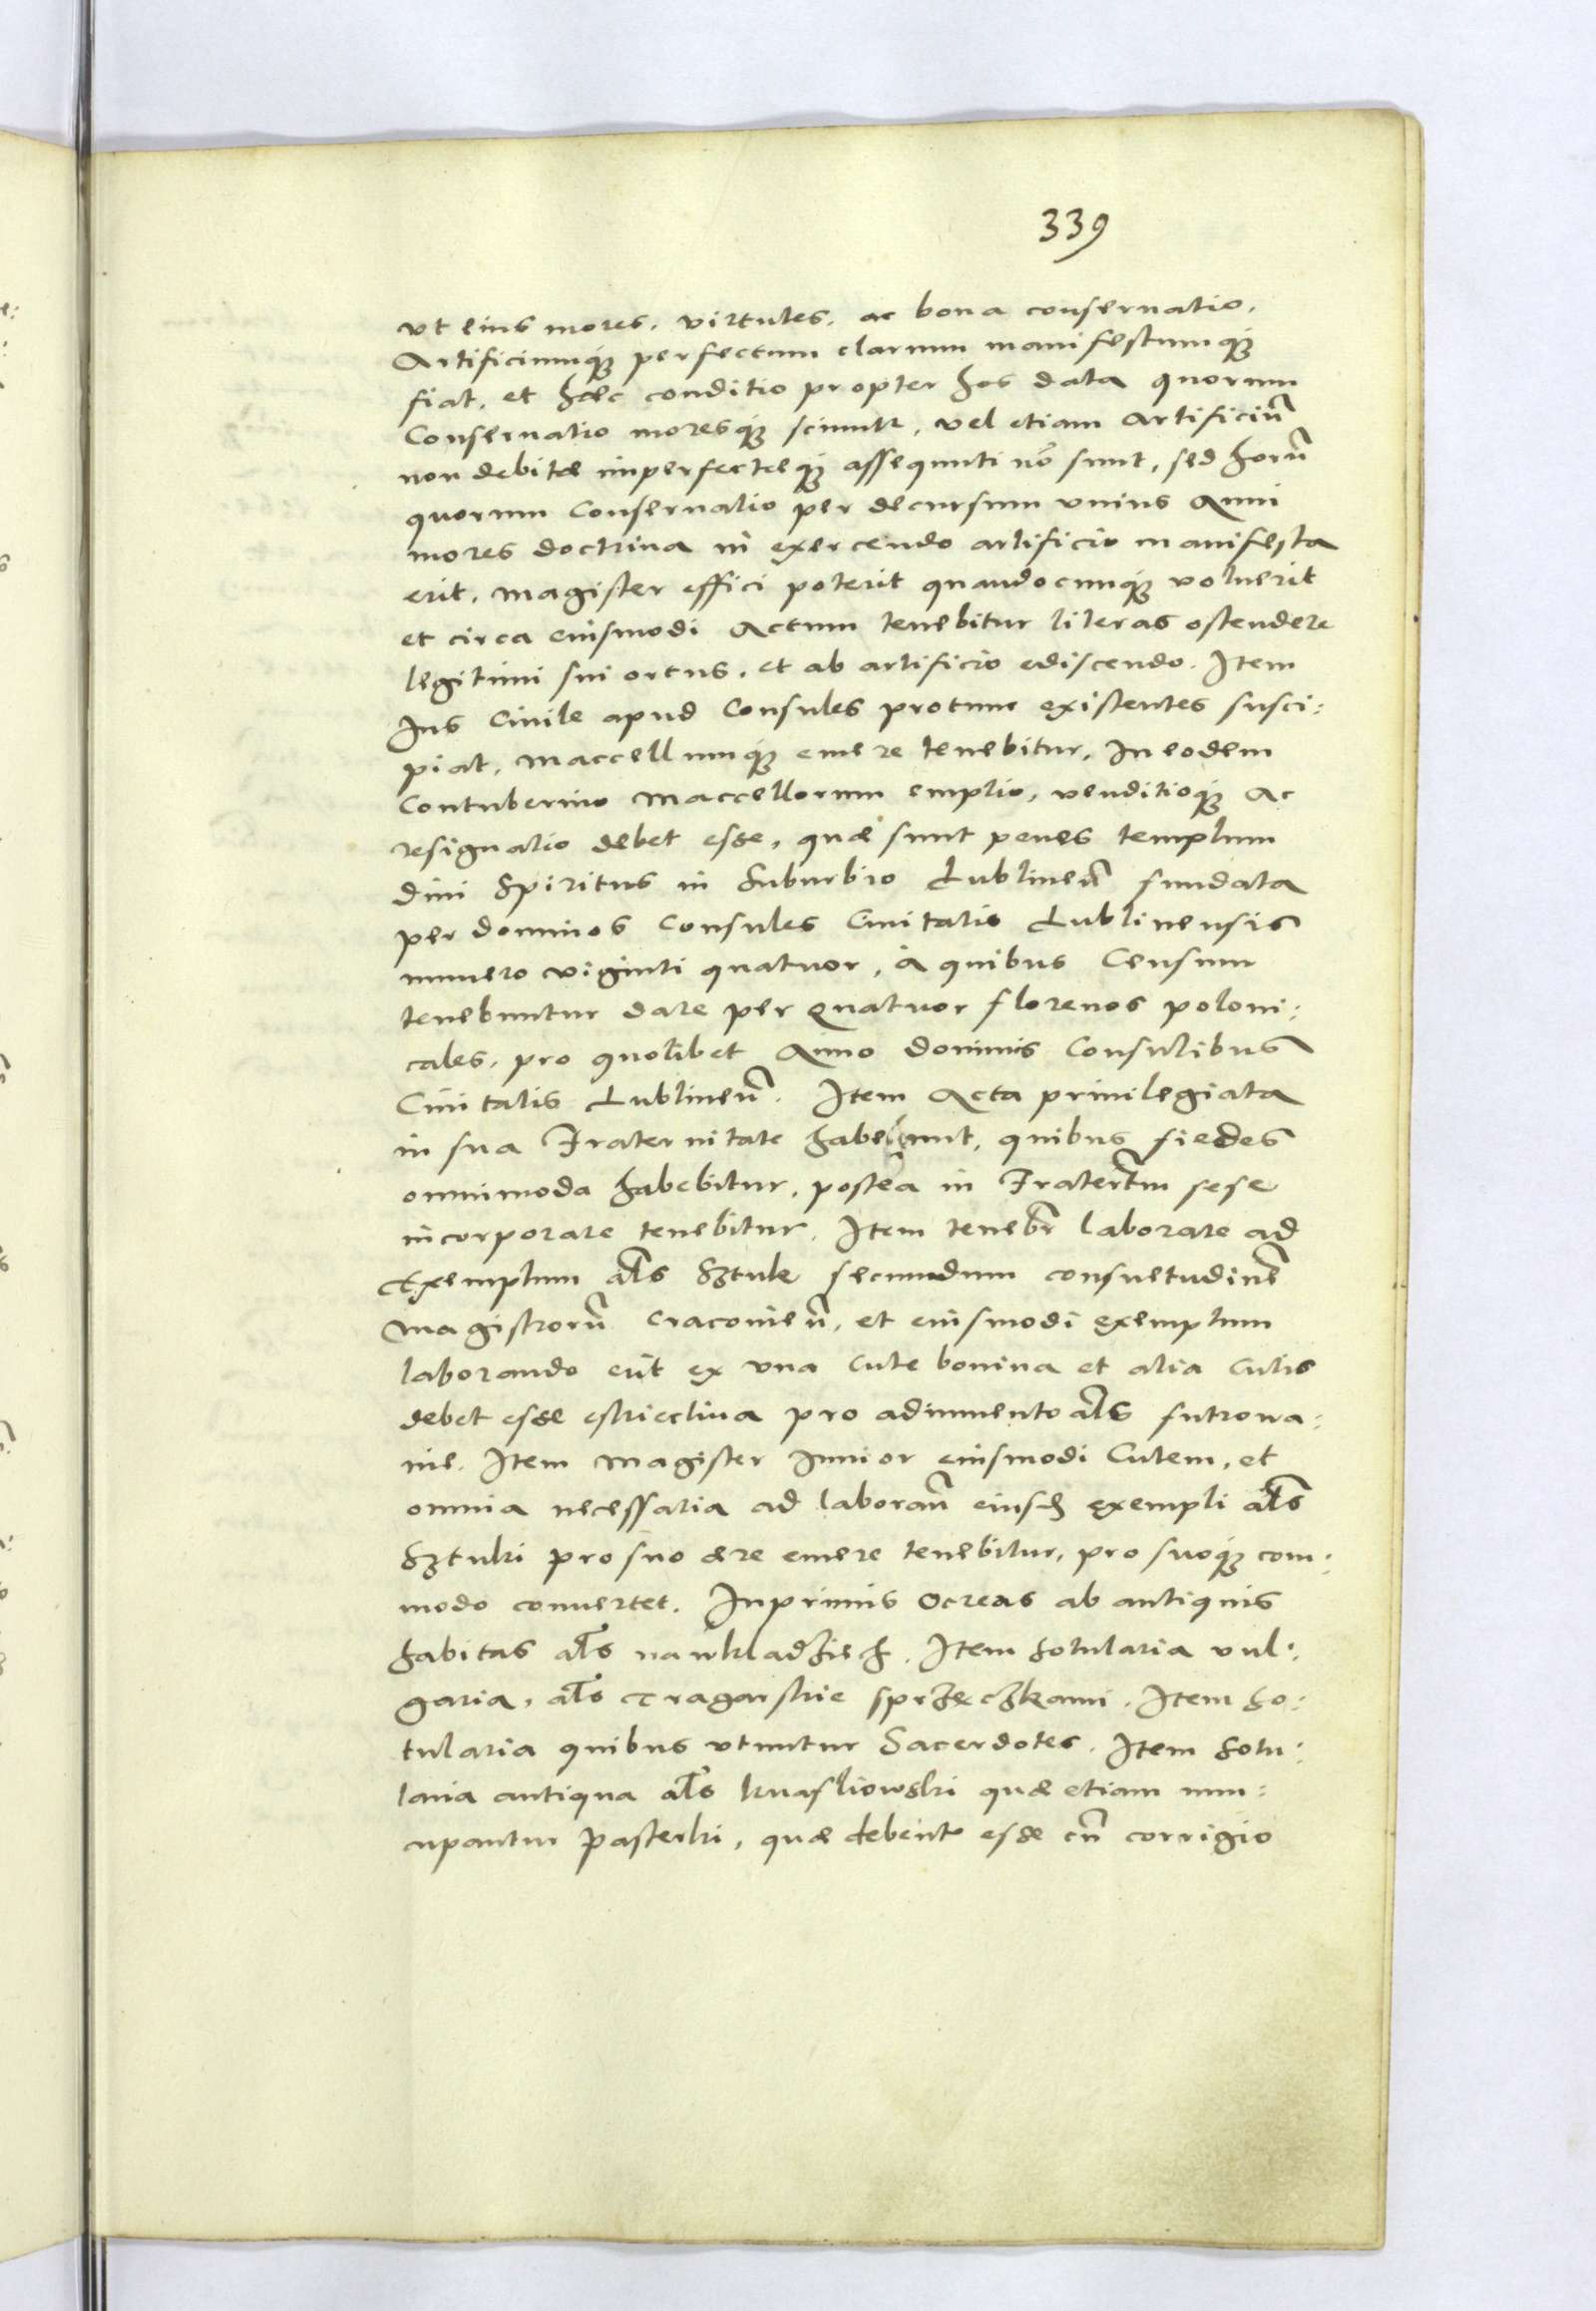 339
vt eius mores, virtutes, ac bona conseruatio,
Artificiumq́; perfectum clarum manifestumq́;
fiat, et haec conditio propter hos data quorum
Conseruatio moresq́; sciuntr, vel etiam artificiū
non debitae imperfecteq́; assequuti nō sunt, sed horū
quorum Conseruatio per decursum vnius Anni
mores doctrina in exercendo artificio manifesta
erit, Magister effici poterit quandocunq́; voluerit
et circa eiusmodi Actum tenebitur literas ostendere
legitimi sui ortus, et ab artificio ediscendo. Item
Ius Ciuile apud Consules protunc existentes susci:
piat, Maccellumq́; emere tenebitur, In eodem
Contubernio Maccellorum emptio, venditioq́; Ac
resignatio debet esse, quae sunt penes templum
diui Spiritus in Suburbio Lublineñ fundata
per dominos Consules Ciuitatis Lublinensis
numero viginti quatuor, à quibus Censum
tenebuntur dare per Quatuor florenos poloni:
cales, pro quolibet Anno dominis Consulibus
Ciuitatis Lublineñ. Item Acta priuilegiata
in sua Fraternitate habebunt, quibus fiedes
omnimoda habebitur, posteà in Fratertm̃ sese
incorporare tenebitur. Item tenebr̃ laborare ad
Exemplum als̃ Sztuke secundum consuetudinē
Magistrorū Cracouieñ, et eiusmodi exemplum
laborando erit ex vna Cute bouina et alia Cutis
debet esse estriectiua pro adiumento als̃ futrowa:
nie. Item Magister Iunior eiusmodi Cutem, et
omnia necessaria ad laborañ eiusd̃ exempli als̃
Sztuki pro suo aere emere tenebitur, pro suoq́; com:
modo conuertet. Inprimis Ocreas ab antiquis
habitas als̃ na wkladzich. Item Sotularia vul:
garia, als̃ Tragarskie sprzęczkami. Item So:
tularia quibus vtuntur Sacerdotes. Item Sotu:
laria antiqua als̃ kwasliowski quae etiam nun:
cupantur Pasterki, quae debent esse cū corrigio